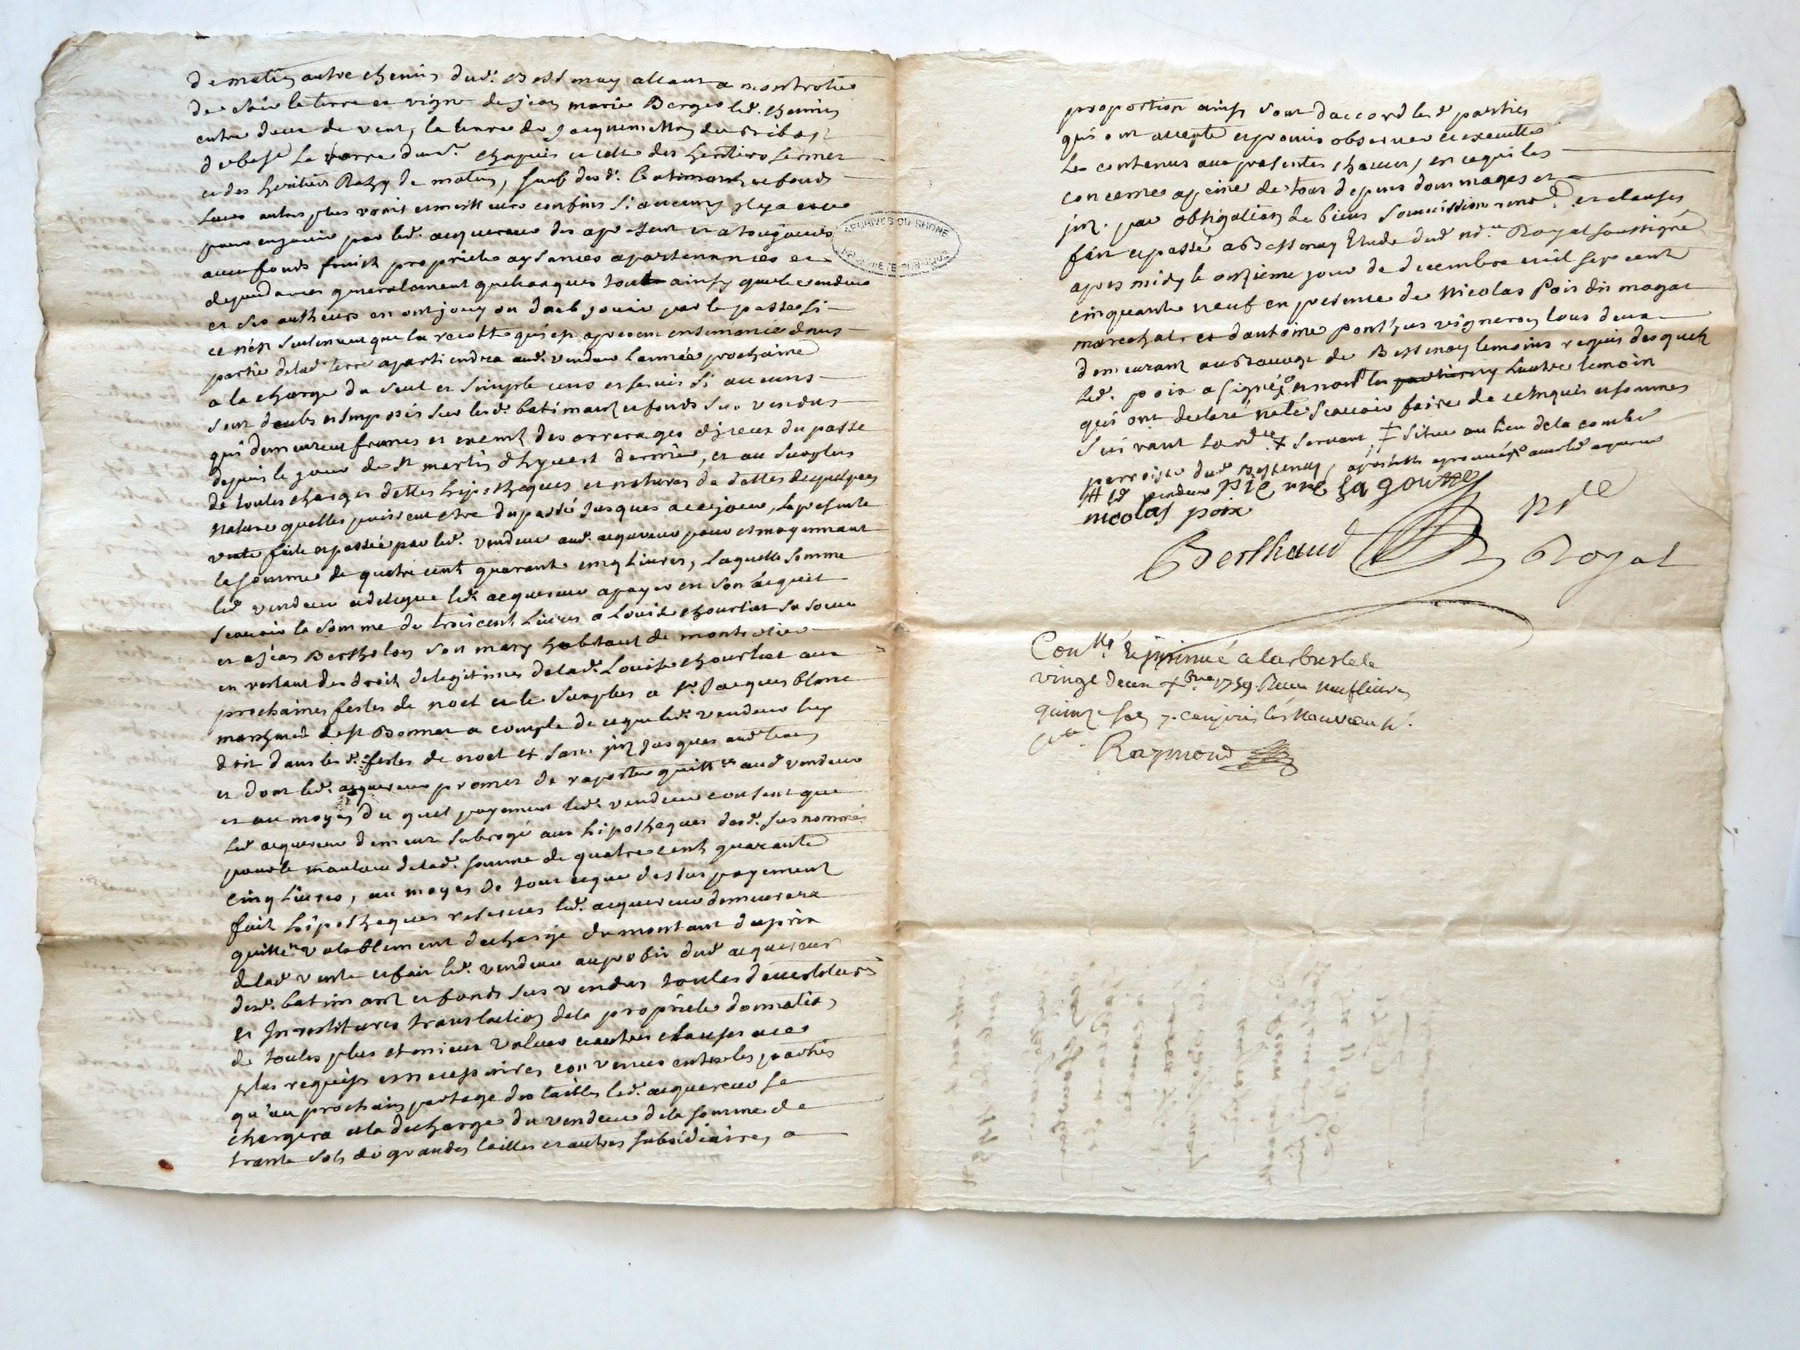 de matin autre chemin dud. Bessenay allant a montrotier
de soir la terre et vigne de jean marie Berger led. chemin
entre deux de vent, la terre de
de bize la terre du sr. chapuis et celle des heritiers
et des heritiers de matin, sauf desd. batiments et fonds
leurs autres plus vrais et meilleurs confins si aucuns il y a
pour en jouir par led. acquereur des apresent et a toujours
avec fonds fruits proprietés aysances apartenances et
dependances generalement quelconques tout ainsy que le vendeur
et ses autheurs en ont jouy ou deub jouir par le passé si
ce n'est seulement que la recolte qui est apresent ensemancée dans
partie de lad. terre apartiendra aud. vendeur l'année prochaine
a la charge du seul et simple cens et servis si aucuns
sont deubs et imposés sur lesd. batiments et fonds sus vendus
qui demeurent francs et exempts des arrerages d'jceux du passé
depuis le jour de st martin d'hyvert dernier, et au surplus
de toutes charges dettes hipotheques et natures de dettes de quelques
nature quelles puissent etre du passé jusques a ce jour, la presente
vente faite et passée par led. vendeur aud. acquereur pour et moyennant
la somme de quatre cent quarante cinq livres, laquelle somme
led. vendeur a delegué led. acquereur a payer en son acquit
scavoir la somme de trois cent livres a Louise chourlat sa soeur
et a jean Bertholon son mary habitant de montrotier
en restant des droits de legitimes de lad. Louise chourlat aux
prochaines festes de noel et le surplus a sr. Jacques blanc
marchand de st Bonnet a compte de ce que led. vendeur luy
doit dans lesd. festes de noel et sans jnt. jusques aud. tems
et dont led. acquereur promet de raporter quitt.ce aud. vendeur
et au moyen du quel payement led. vendeur consent que
led. acquereur demeure subrogé aux hipotheques desd. sus nommés
pour le montant de lad. somme de quatre cent quarante
cinq livres, au moyen de tout ce que dessus payement
fait hipotheques reservées led. acquereur demeurera
quitte valablement dechargé du montant du prix
de lad. vente et fait led. vendeur au profit dud. acquereur
desd. batiments et fonds sus vendus toutes devestitures
et Investitures translation de la proprieté donnation
de toutes plus et mieux values et autres clauses a ce
plus requises et necessaires convenu entre les parties
qu'au prochain partage des tailles led. acquereur se
chargera a la decharge du vendeur de la somme de
trente sols de grandes tailles et autres subsidiaires, a
proportion ainsi sont d'accord lesd. parties
qui ont accepté et promis observer et executer
le contenu aux presentes chacun, en ce qui les
concerne a peine de tous depens dommages et
jnt. par obligation de biens soumissions renon. et clauses
fait et passé a Bessenay Etude dud. nre. Royal soussigné
apres midy le onzieme jour de decembre mil sept cent
cinquante neuf en presence de Nicolas Poix dit magat
marechal et d'antoine ponthus vigneron tous deux
demeurant au Bourg de Bessenay temoins requis des quels
led. poix a signé et non l'autre temoin
qui ont declaré ne le scavoir faire de ce enquis et sommés
suivant l'ord.ce + servant ‡ situé au lieu de la combe
parroisse dud. Bessenay, apostilles aprouvés avec led. acquereur
# led. vendeur pierre lagoutte
nicolas poix
Berthaud Nre
Royal
Con.llé et jnsinué a larbresle le
vingt deux xbre 1759. Receu neuf livres
quinze sols y compris les Nouveaux s.
Raymond
ARCHIVES DU RHONE